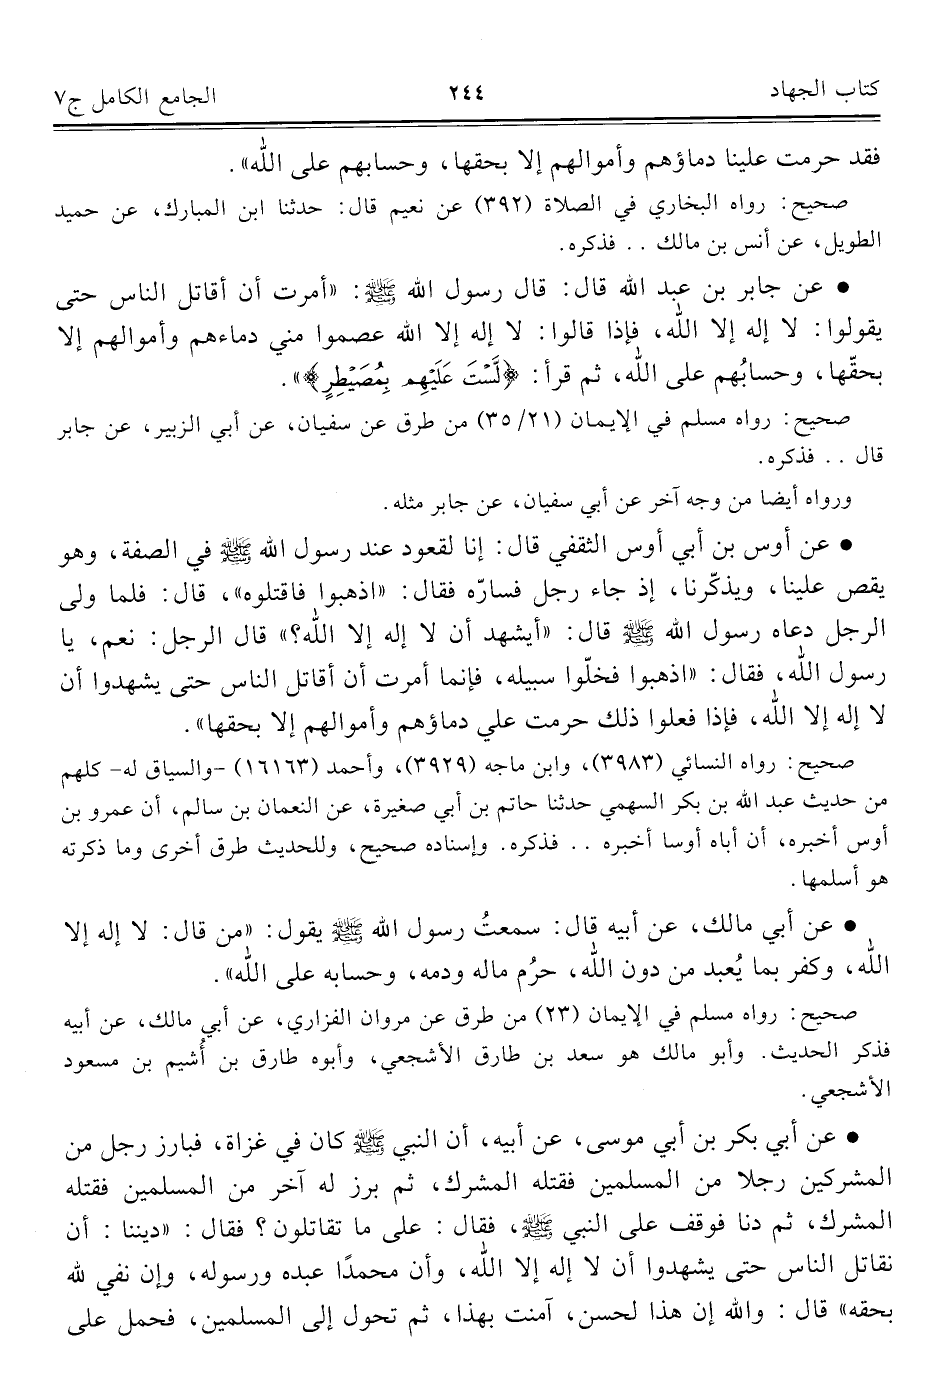 كتاب الجهاد ٢٤٤ الجامع الكامل ج٧
فقد حرمت علينا دماؤهم وأموالهم إلا بحقها، وحسابهم على الله».
صحيح: رواه البخاري في الصلاة (٣٩٢) عن نعيم قال: حدثنا ابن المبارك، عن حميد
الطويل، عن أنس بن مالك .. فذكره.
• عن جابر بن عبد الله قال: قال رسول الله ﷺ: «أمرت أن أقاتل الناس حتى
يقولوا: لا إله إلا الله، فإذا قالوا: لا إله إلا الله عصموا مني دماءهم وأموالهم إلا
بحقّها، وحسابُهم على الله، ثم قرأ: ﴿لَّسْتَ عَلَيْهِم بِمُصَيْطِرٍ﴾».
صحيح: رواه مسلم في الإيمان (٣٥/٢١) من طرق عن سفيان، عن أبي الزبير، عن جابر
قال .. فذكره.
ورواه أيضا من وجه آخر عن أبي سفيان، عن جابر مثله.
• عن أوس بن أبي أوس الثقفي قال: إنا لقعود عند رسول الله ﷺ في الصفة، وهو
يقص علينا، ويذكّرنا، إذ جاء رجل فسارّه فقال: «اذهبوا فاقتلوه»، قال: فلما ولى
الرجل دعاه رسول الله ﷺ قال: «أيشهد أن لا إله إلا الله؟» قال الرجل: نعم، يا
رسول الله، فقال: «اذهبوا فخلّوا سبيله، فإنما أمرت أن أقاتل الناس حتى يشهدوا أن
لا إله إلا الله، فإذا فعلوا ذلك حرمت علي دماؤهم وأموالهم إلا بحقها».
صحيح: رواه النسائي (٣٩٨٣)، وابن ماجه (٣٩٢٩)، وأحمد (١٦١٦٣) -والسياق له- كلهم
من حديث عبد الله بن بكر السهمي حدثنا حاتم بن أبي صغيرة، عن النعمان بن سالم، أن عمرو بن
أوس أخبره، أن أباه أوسا أخبره .. فذكره. وإسناده صحيح، وللحديث طرق أخرى وما ذكرته
هو أسلمها.
• عن أبي مالك، عن أبيه قال: سمعتُ رسول الله ﷺ يقول: «من قال: لا إله إلا
الله، وكفر بما يُعبد من دون الله، حرُم ماله ودمه، وحسابه على الله».
صحيح: رواه مسلم في الإيمان (٢٣) من طرق عن مروان الفزاري، عن أبي مالك، عن أبيه
فذكر الحديث. وأبو مالك هو سعد بن طارق الأشجعي، وأبوه طارق بن أُشيم بن مسعود
الأشجعي.
• عن أبي بكر بن أبي موسى، عن أبيه، أن النبي ﷺ كان في غزاة، فبارز رجل من
المشركين رجلا من المسلمين فقتله المشرك، ثم برز له آخر من المسلمين فقتله
المشرك، ثم دنا فوقف على النبي ﷺ، فقال : على ما تقاتلون؟ فقال : «ديننا : أن
نقاتل الناس حتى يشهدوا أن لا إله إلا الله، وأن محمدًا عبده ورسوله، وإن نفي لله
بحقه» قال : والله إن هذا لحسن، آمنت بهذا، ثم تحول إلى المسلمين، فحمل على